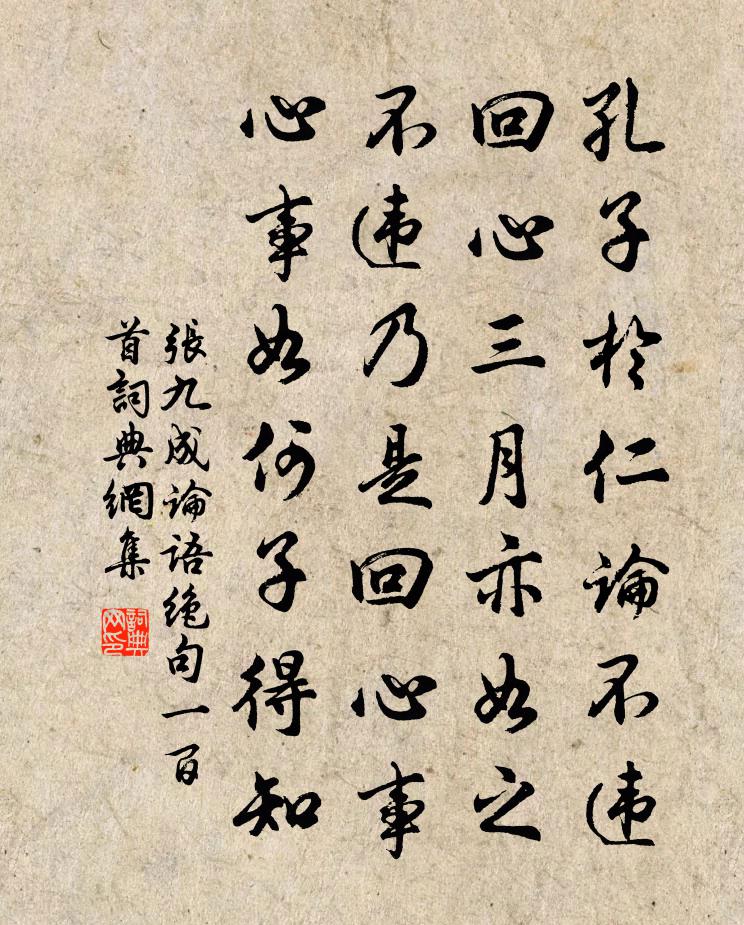 孔子於仁論不违
回心三月亦如之
不违乃是回心事
心事如何子得知
張九成論语绝句一百
首詞典網集
詞典
网印